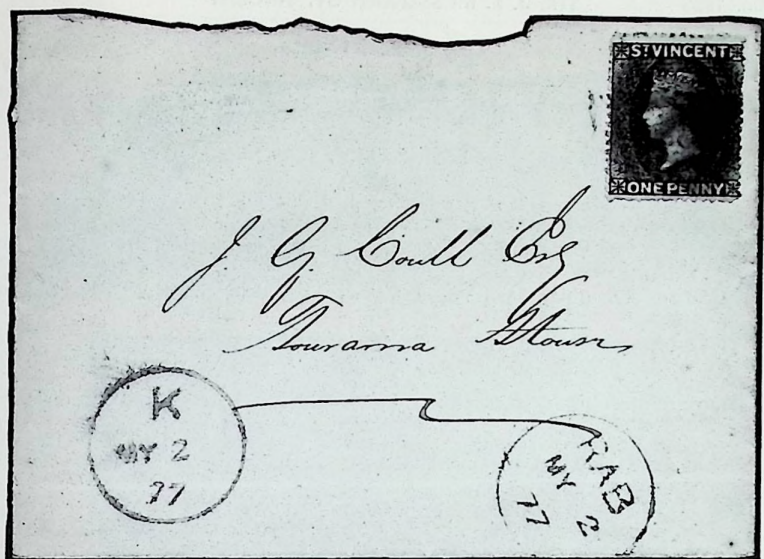 ST VINCENT
ONE PENNY
J. G. Coull Esq
Tourama House
K
MY 2
77
RAB
MY 2
77